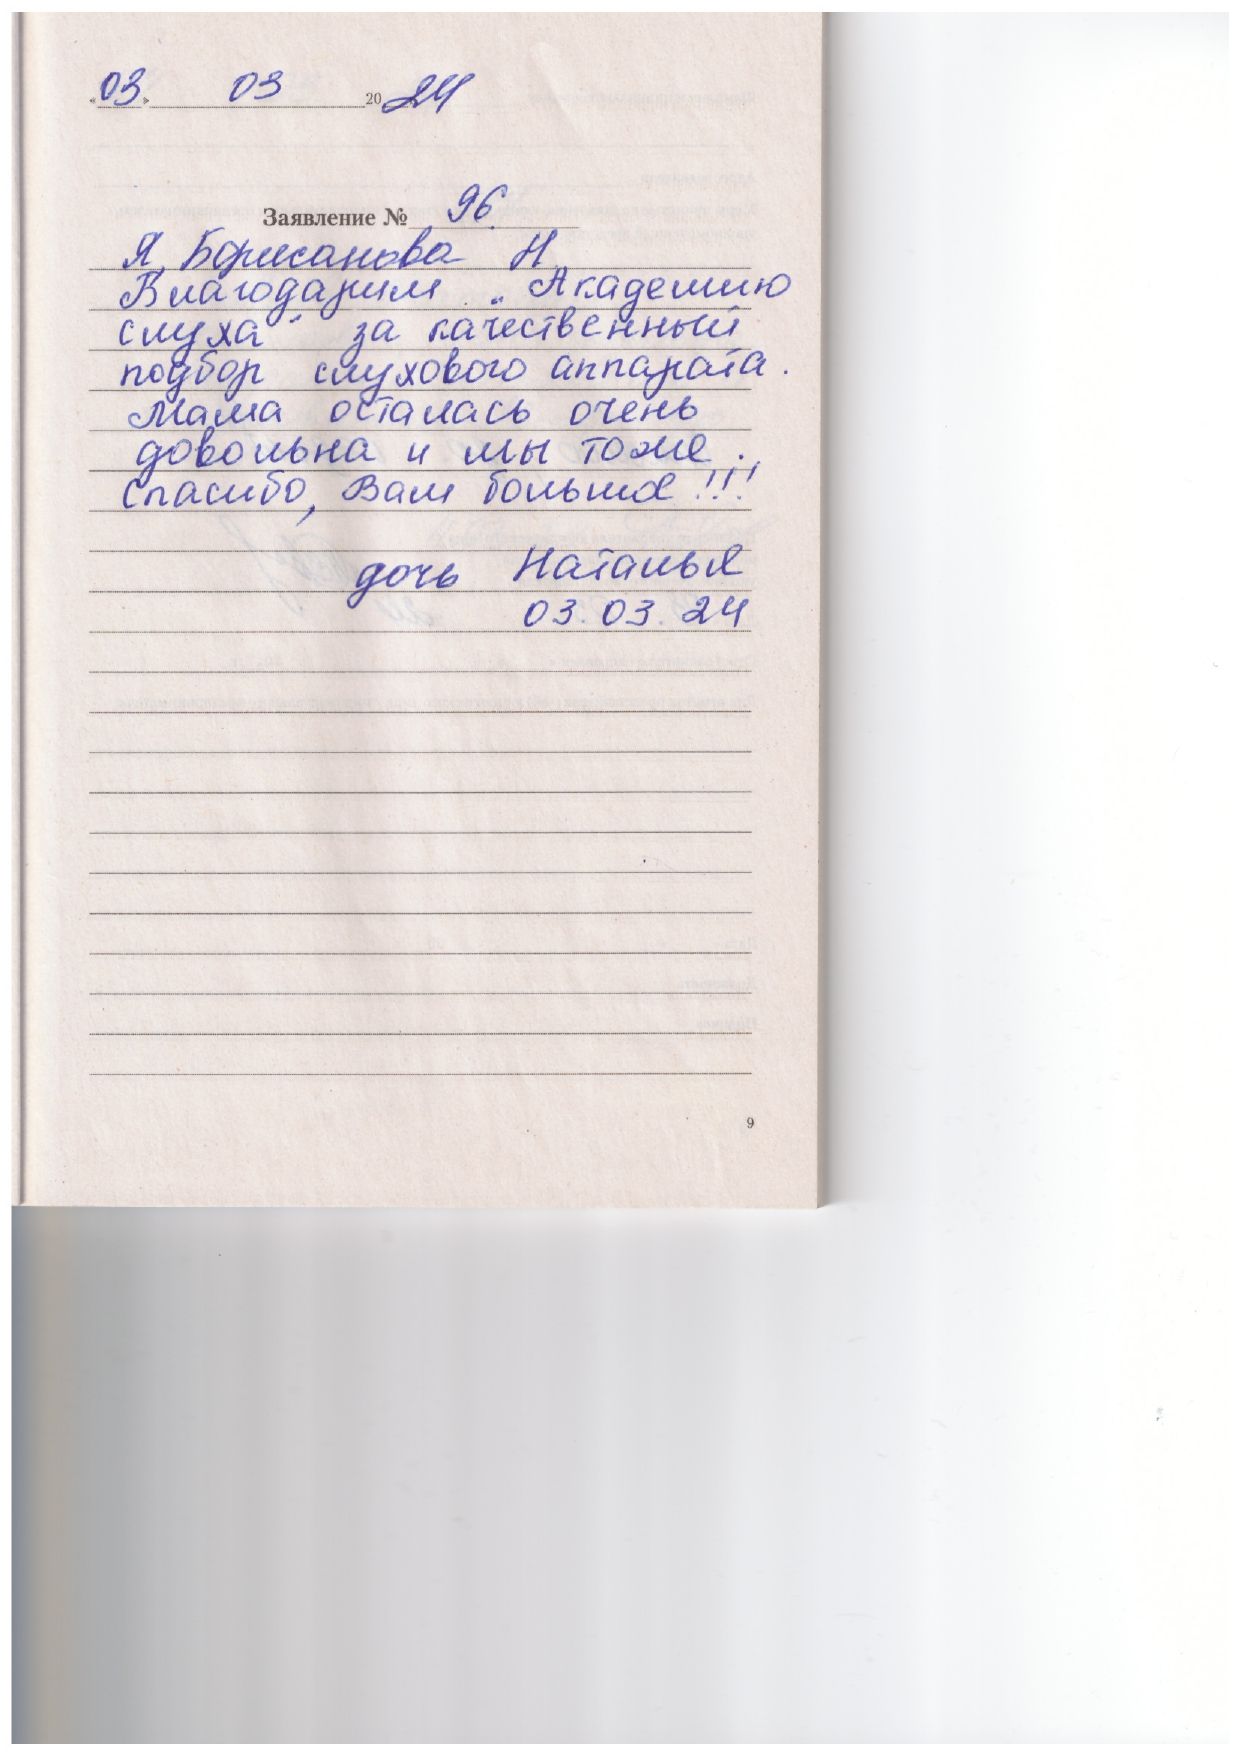 «03» 03 2024
Заявление № 96
Я, Борисанова Н.
Благодарим „Академию
слуха" за качественный
подбор слухового аппарата.
Мама осталась очень
довольна и мы тоже.
Спасибо, Вам большое!!!
дочь Наталья
03.03.24
9